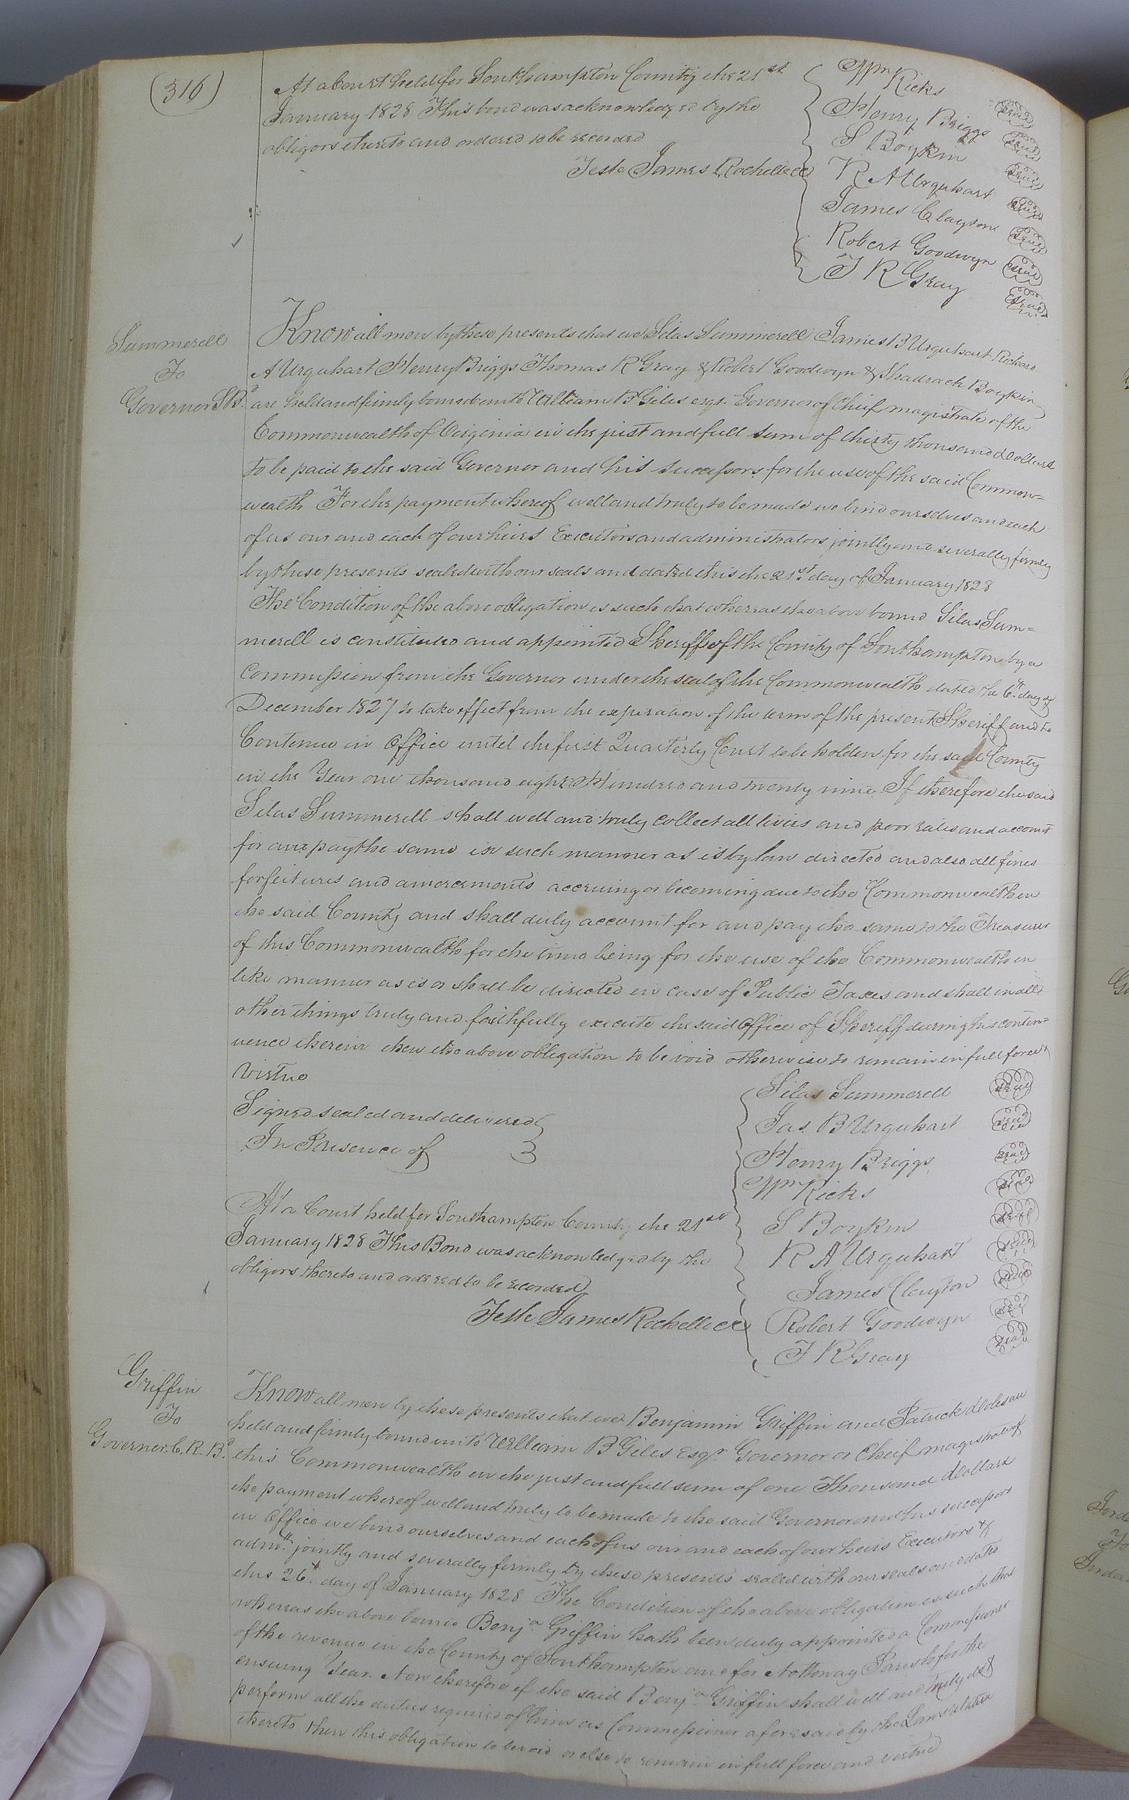 (316)
At a Court held for Southampton County the 21st
January 1828 This bond was acknowledged by the
obligors thereto and ordered to be record
Teste James Rochelle CC
Wm Ricks seal
Henry Briggs seal
S Boykin seal
R A Urquhart seal
James Clayton seal
Robert Goodwyn seal
T R Gray seal
Summerell
To
Governor S Bd.
Know all men by these presents that we Silas Summerell James B Urquhart Richard
A Urquhart Henry Briggs Thomas R Gray & Robert Goodwyn & Shadrach Boykin
are held and firmly bound unto William B Giles esqr. Governor of Chief magistrate of the
Commonwealth of Virginia in the just and full sum of thirty thousand dollars
to be paid to the said Governor and his successors for the use of the said Common=
wealth For the payment whereof well and truly to be made we bind ourselves and each
of us our and each of our heirs Executors and administrators jointly and severally firmly
by these presents sealed with our seals and dated this the 21st day of January 1828
The Condition of the above obligation is such that whereas the above bound Silas Sum=
merell is constituted and appointed Sheriff of the County of Southampton by a
Commission from the Governor under the seal of the Commonwealth dated the 6th day of
December 1827 to take effect from the expiration of the term of the present Sheriff and to
Continue in Office until the first Quarterly Court to be holden for the said County
in the Year one thousand eight Hundred and twenty nine If therefore the said
Silas Summerell shall well and truly collect all levies and poor rates and account
for and pay the same in such manner as is by law directed and also all fines
forfeitures and amercements accruing or becoming due to the Commonwealth in
the said County and shall duly account for and pay the same to the Treasurer
of this Commonwealth for the time being for the use of the Commonwealth in
like manner as is or shall be directed in case of Public Taxes and shall in all
other things truly and faithfully execute the said Office of Sheriff during his contin=
uence therein then the above obligation to be void otherwise to remain in full force &
Virtue
Signed sealed and delivered
In Presence of
Silas Summerell seal
Jas B Urquhart seal
Henry Briggs seal
Wm Ricks seal
S Boykin seal
R A Urquhart seal
James Clayton seal
Robert Goodwyn seal
T R Gray seal
At a Court held for Southampton County the 21st
January 1828 This Bond was acknowledged by the
obligors thereto and ordered to be recorded
Teste James Rochelle CC
Griffin
To
Governor C. R. Bd.
Know all men by these presents that we Benjamin Griffin and Patrick are
held and firmly bound unto William B Giles Esqr. Governor or Chief magistrate of
this Commonwealth in the just and full sum of one Thousand dollars
the payment whereof well and truly to be made to the said Governor and his successors
in Office we bind ourselves and each of us our and each of our heirs Executors &
admrs. jointly and severally firmly by these presents sealed with our seals and dated
this 26th. day of January 1828 The Condition of the above obligation is such that
whereas the above bound Benja Griffin hath been duly appointed a Commissioner
of the revenue in the County of Southampton and for Nottoway Parish for the
ensuing Year Now therefore if the said Benja Griffin shall well and truly do &
perform all the duties required of him as Commissioner aforesaid by the Laws relative
thereto then this obligation to be void or else to remain in full force and virtue